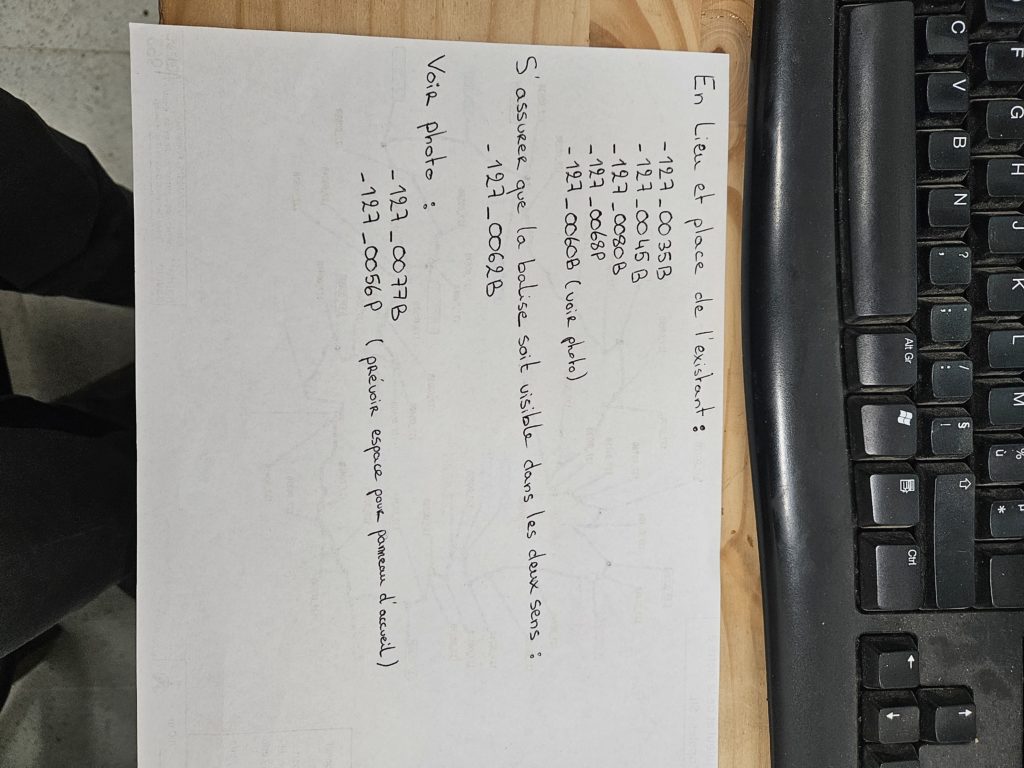 En Lieu et place de l'existant :
- 127_0035B
- 127_0045B
- 127_0080B
- 127_0068P
- 127_0060B (voir photo)
S'assurer que la balise soit visible dans les deux sens :
- 127_0062B
Voir photo :
- 127_0077B
- 127_0056P (prévoir espace pour panneau d'accueil)
C
V
B
N
?
,
.
;
/
:
§
!
F
G
H
J
K
L
M
%
ù
µ
*
Alt Gr
Ctrl